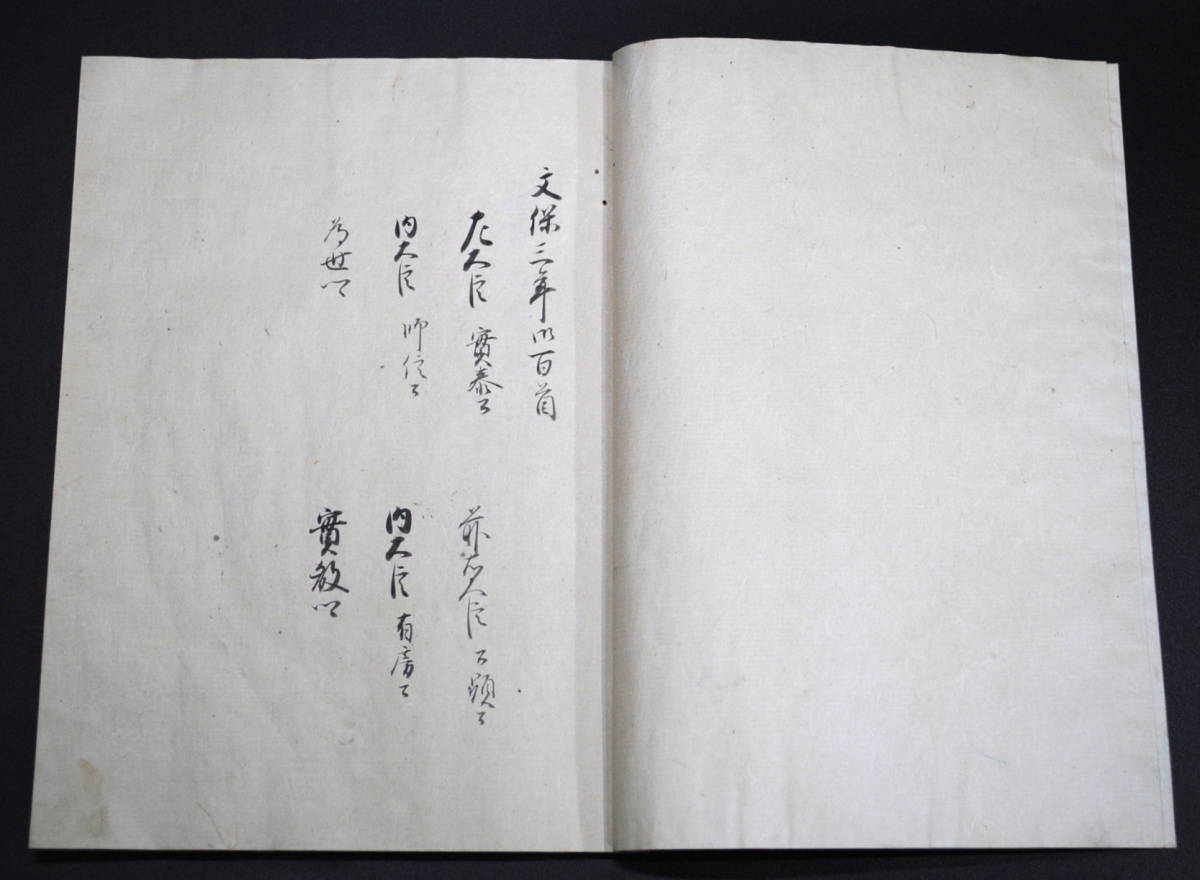 文保三年御百首
左大臣 實泰公
前右大臣 公顕公
内大臣 師信公
内大臣 有房公
為世卿
實教卿